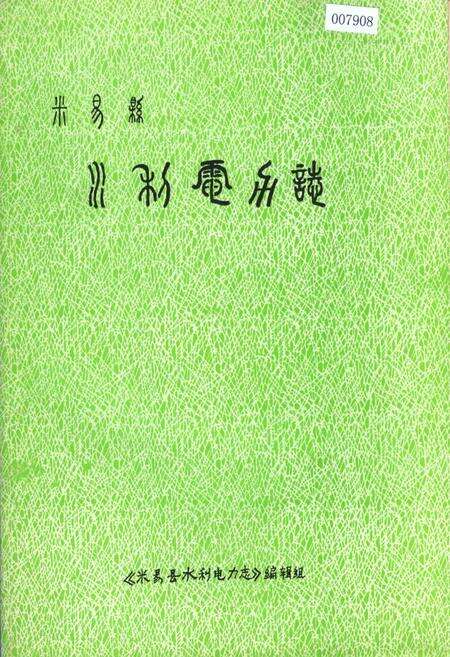 007908
米易縣
水利電力誌
《米易县水利电力志》编辑组